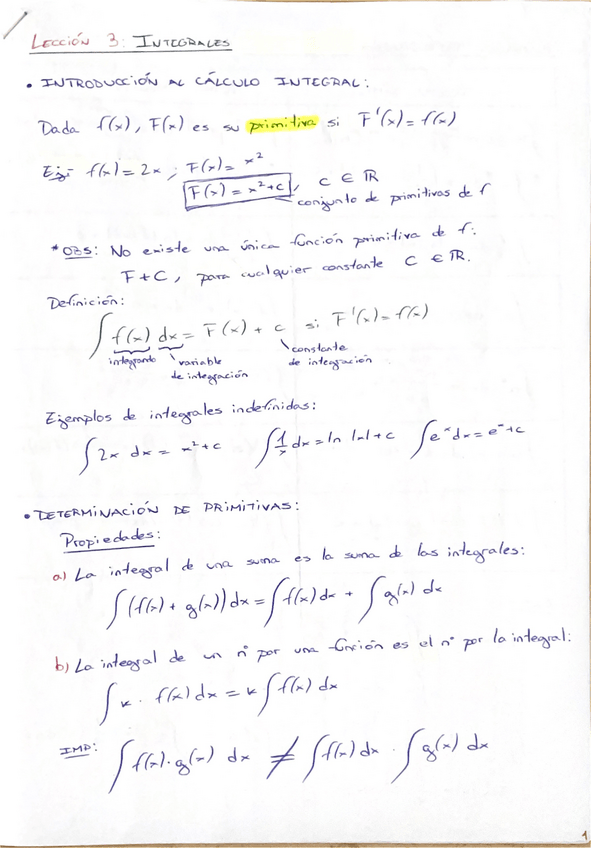 LECCIÓN 3: INTEGRALES
• INTRODUCCIÓN AL CÁLCULO INTEGRAL:
Dada f(x), F(x) es su primitiva si F'(x) = f(x)
Ej:- f(x) = 2x ; F(x) = x²
F(x) = x²+c, c ∈ ℝ
conjunto de primitivas de f
* OBS: No existe una única función primitiva de f:
F + C, para cualquier constante C ∈ ℝ.
Definición:
∫ f(x) dx = F(x) + c si F'(x) = f(x)
integrando variable de integración
constante de integración
Ejemplos de integrales indefinidas:
∫ 2x dx = x²+c ∫ 1/x dx = ln |x|+c ∫ eˣ dx = eˣ+c
• DETERMINACIÓN DE PRIMITIVAS:
Propiedades:
a) La integral de una suma es la suma de las integrales:
∫ (f(x) + g(x)) dx = ∫ f(x) dx + ∫ g(x) dx
b) La integral de un nº por una función es el nº por la integral:
∫ k · f(x) dx = k ∫ f(x) dx
IMP: ∫ f(x)·g(x) dx ≠ ∫ f(x) dx · ∫ g(x) dx
1